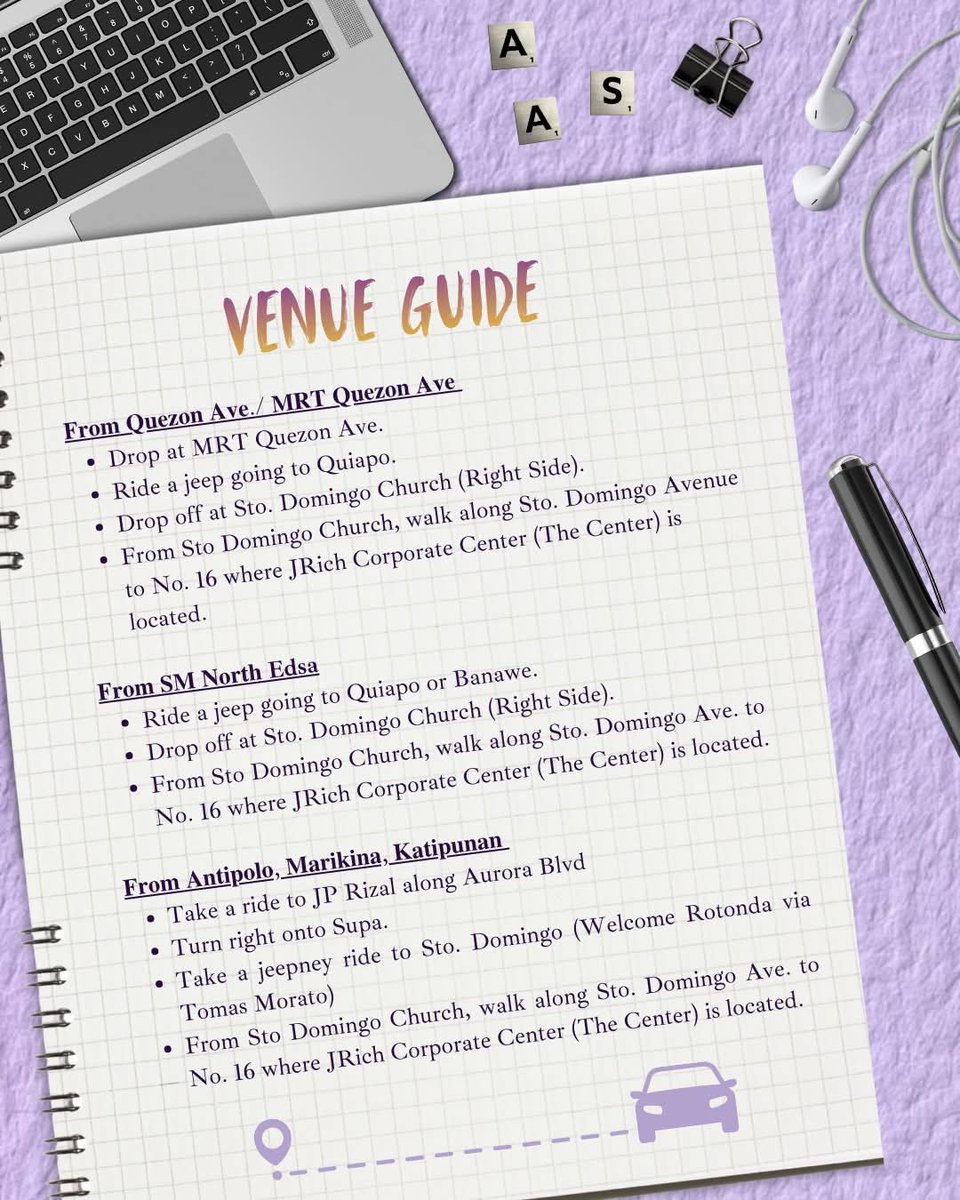 A
S
A
VENUE GUIDE
From Quezon Ave./ MRT Quezon Ave
• Drop at MRT Quezon Ave.
• Ride a jeep going to Quiapo.
• Drop off at Sto. Domingo Church (Right Side).
• From Sto Domingo Church, walk along Sto. Domingo Avenue
to No. 16 where JRich Corporate Center (The Center) is
located.
From SM North Edsa
• Ride a jeep going to Quiapo or Banawe.
• Drop off at Sto. Domingo Church (Right Side).
• From Sto Domingo Church, walk along Sto. Domingo Ave. to
No. 16 where JRich Corporate Center (The Center) is located.
From Antipolo, Marikina, Katipunan
• Take a ride to JP Rizal along Aurora Blvd
• Turn right onto Supa.
• Take a jeepney ride to Sto. Domingo (Welcome Rotonda via
Tomas Morato)
• From Sto Domingo Church, walk along Sto. Domingo Ave. to
No. 16 where JRich Corporate Center (The Center) is located.